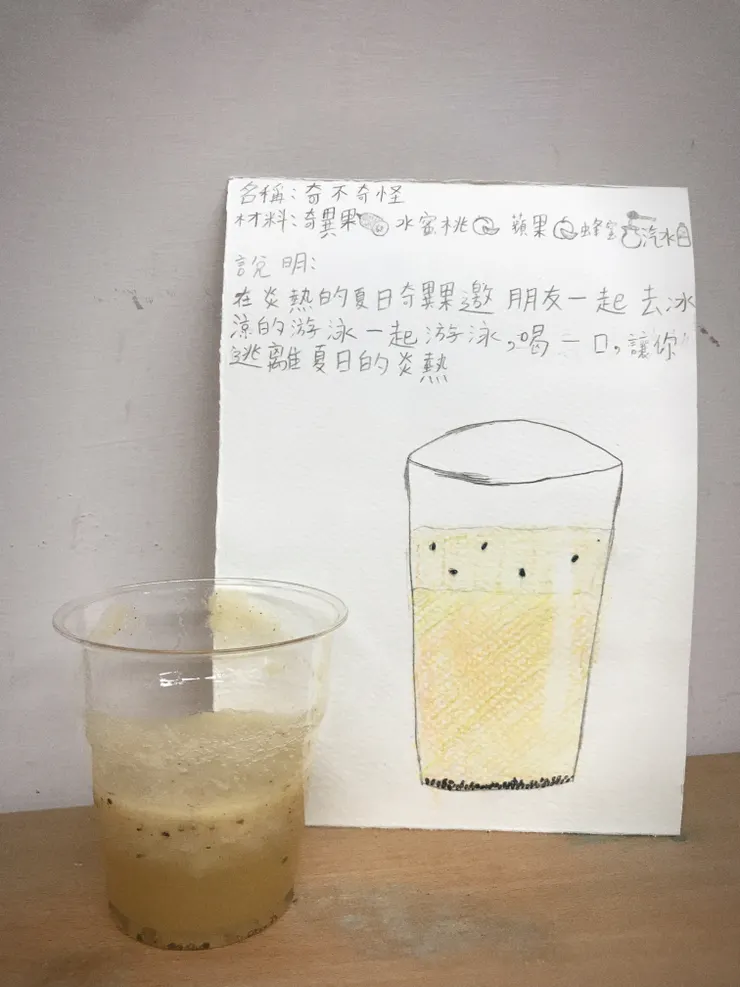 名稱：奇不奇怪
材料：奇異果 水蜜桃 蘋果 蜂蜜 汽水
說明：
在炎熱的夏日奇異果邀朋友一起去冰
涼的游泳一起游泳，喝一口，讓你
逃離夏日的炎熱